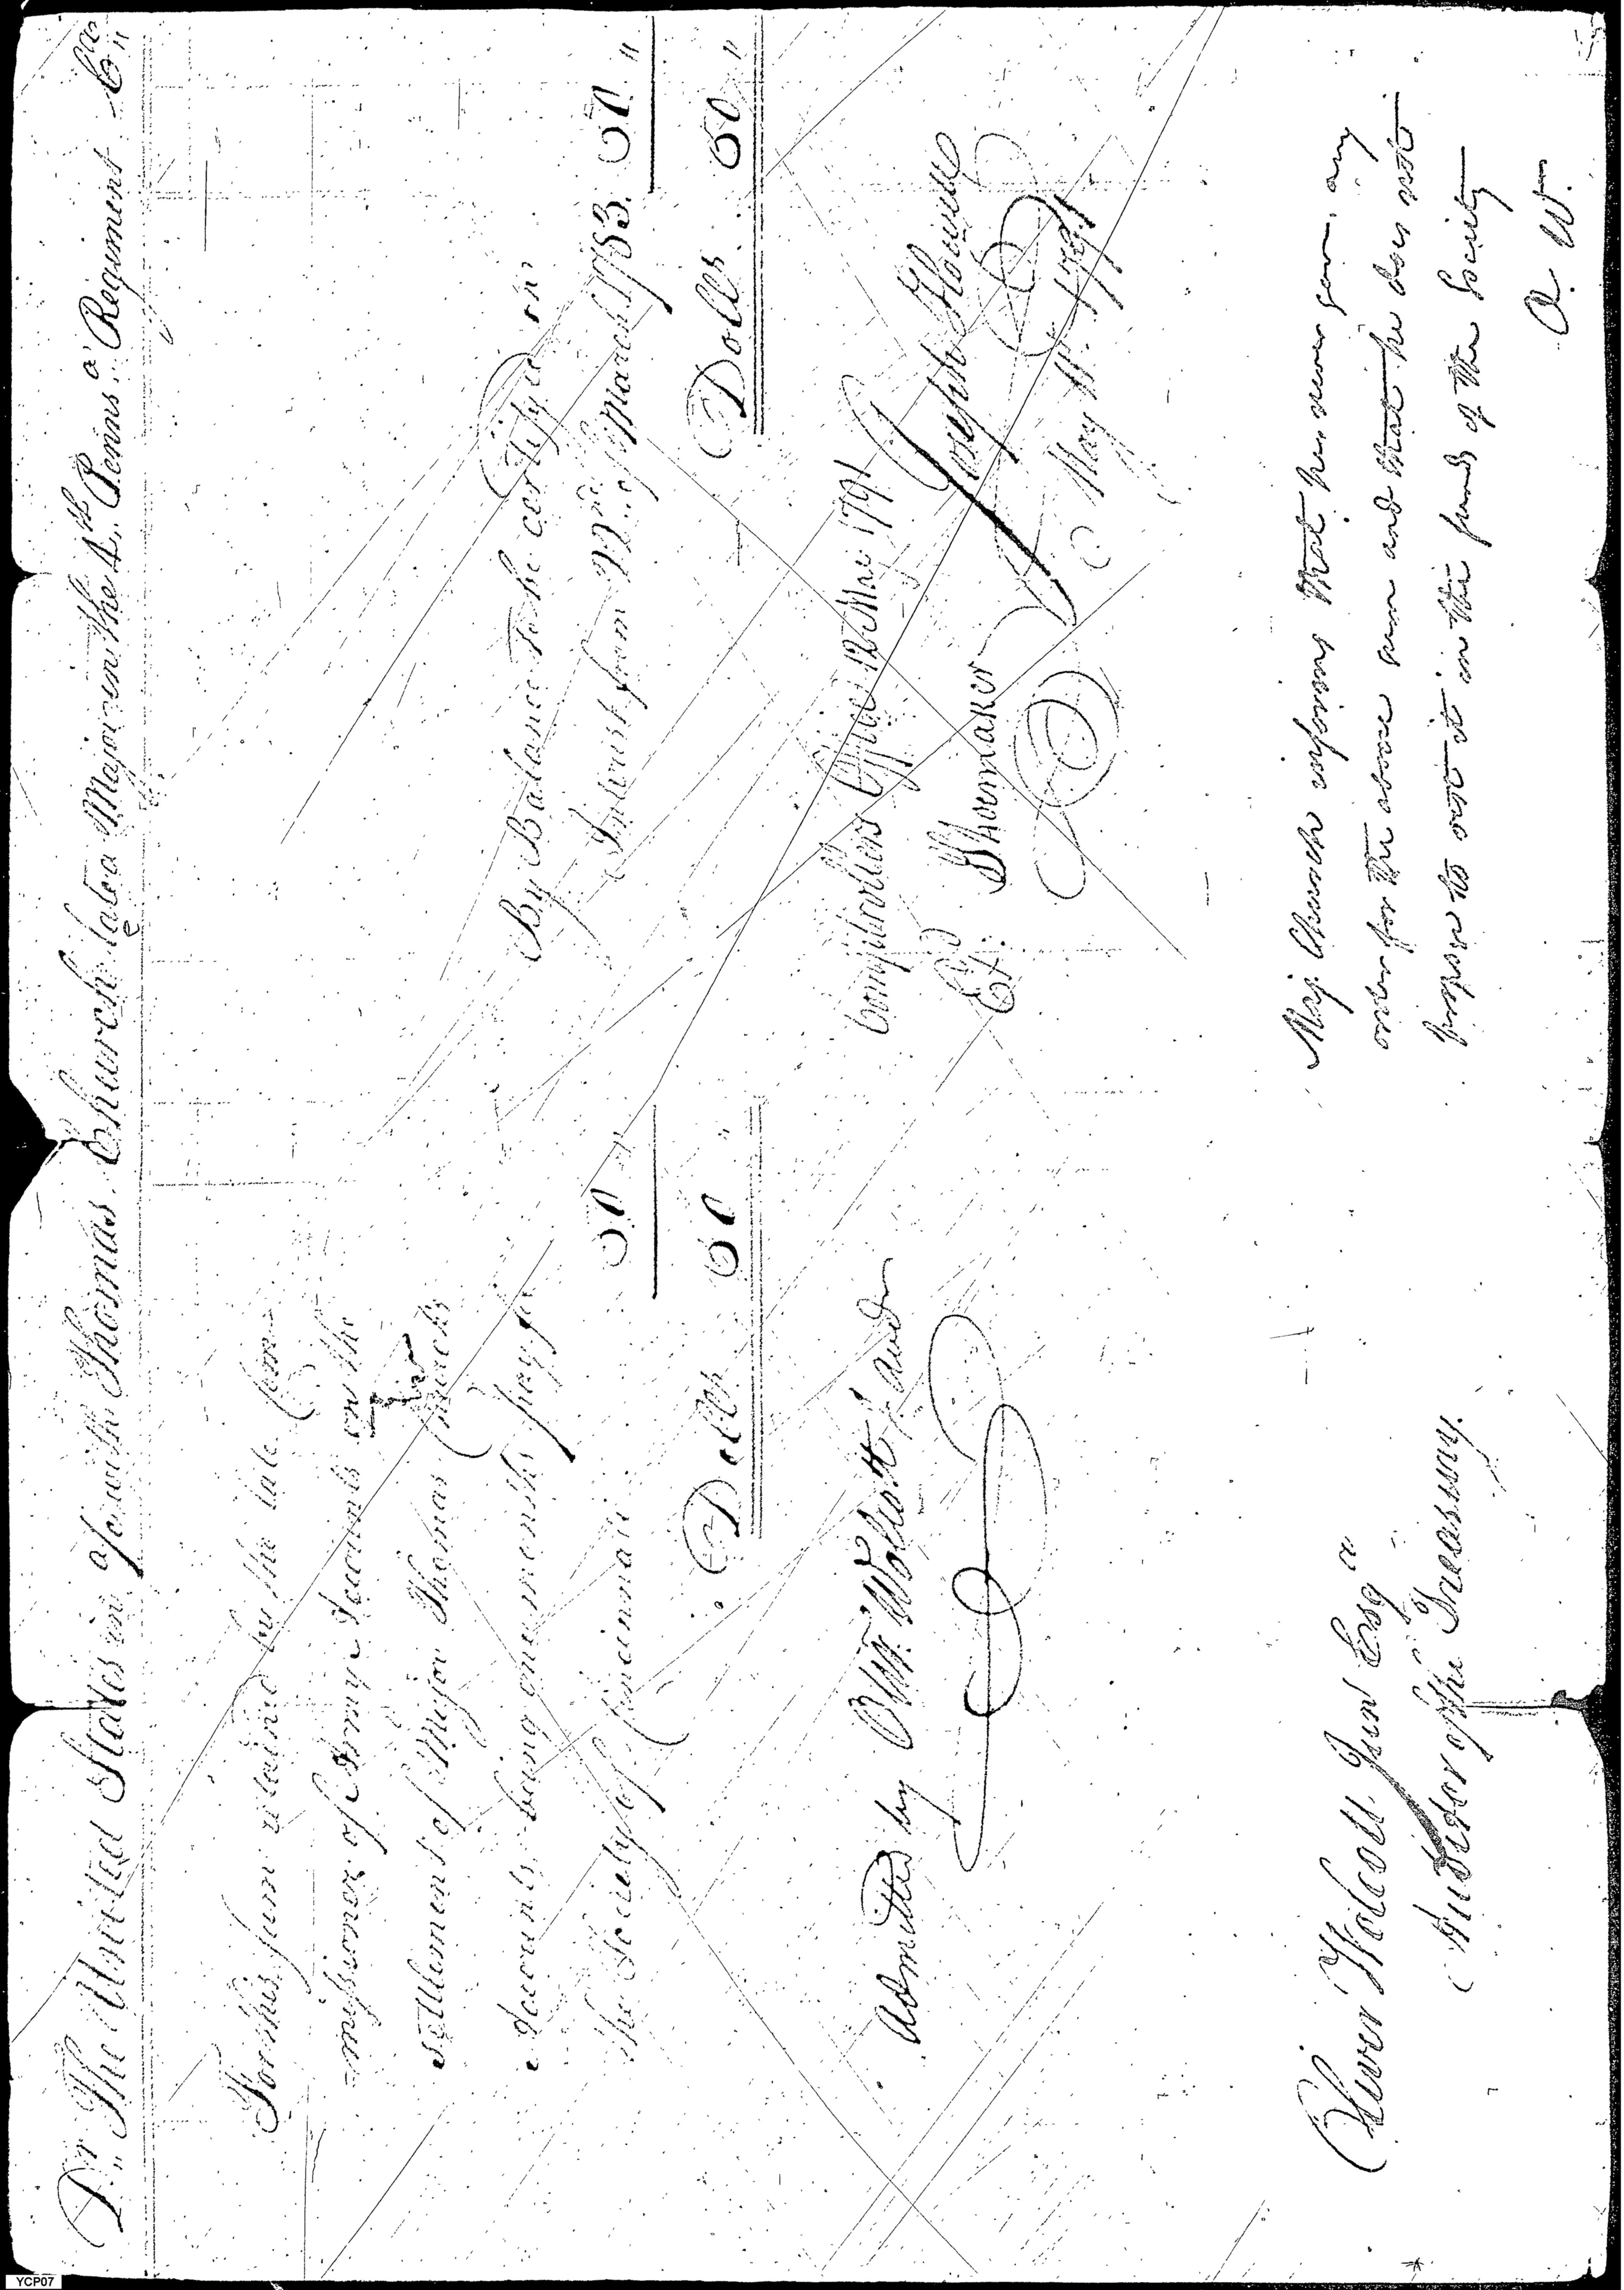 Dr. The United States in a/c with Thomas Church late a Major in the 4th Penns.a Regiment Cr.
For this sum retained by the late Com=
=missioner of Army Accounts on the
settlement of Major Thomas Church's
Accounts, being one months pay for
the Society of Cincinnati 50 "
Dolls 50 "
By Balance To be certifyed on
Interest from 22nd of March 1783. 50 "
Dolls 50 "
Admitted by Olivr. Wolcott Jr. Audr
Comptrollers Office 12 May 1791
Exd Shoemaker
Joseph Howell
May 11. 1791
Oliver Wolcott Junr Esqr
Auditor of the Treasury.
Maj. Church informs that he never gave any
order for the above sum and that he does not
propose to vest it in the funds of the Society
O. W.
YCP07